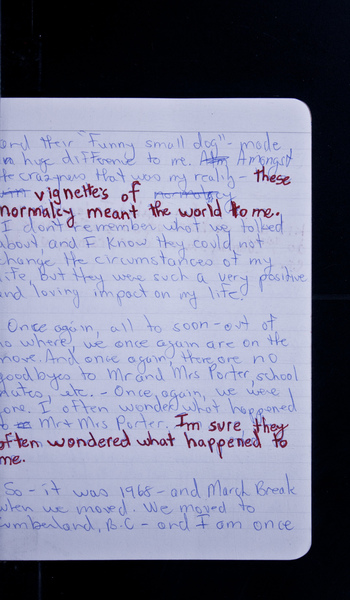 and their "funny small dog" - made
a huge difference to me. Amongst
the crazyness that was my reality - these
vignettes of normalcy
normalcy meant the world to me..
I don't remember what we talked
about, and I know they could not
change the circumstances of my
life, but they were such a very positive
and loving impact on my life.
Once again, all to soon - out of
no where, we once again are on the
move. And once again, there are no
goodbyes to Mr and Mrs Porter, school
mates, etc. - Once, again, we were
gone. I often wonder what happened
to Mr + Mrs Porter. I'm sure they
often wondered what happened to
me..
So - it was 1968 - and March Break
when we moved. We moved to
Cumberland, B.C - and I am once